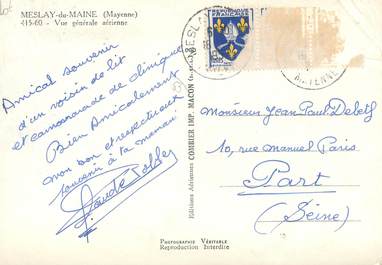 MESLAY-du-MAINE (Mayenne)
415-60 - Vue générale aérienne
Amical souvenir
d'un voisin de lit
et camarade de clinique
Bien Amicalement
mon bon et respectueux
souvenir à ta maman
Claude
PHOTOGRAPHIE VÉRITABLE
Reproduction Interdite
Editions Aériennes COMBIER IMP. MACON
REPUBLIQUE
FRANÇAISE
MESLAY
MAYENNE
Monsieur Jean Paul
10, rue Manuel Paris
Part
(Seine)